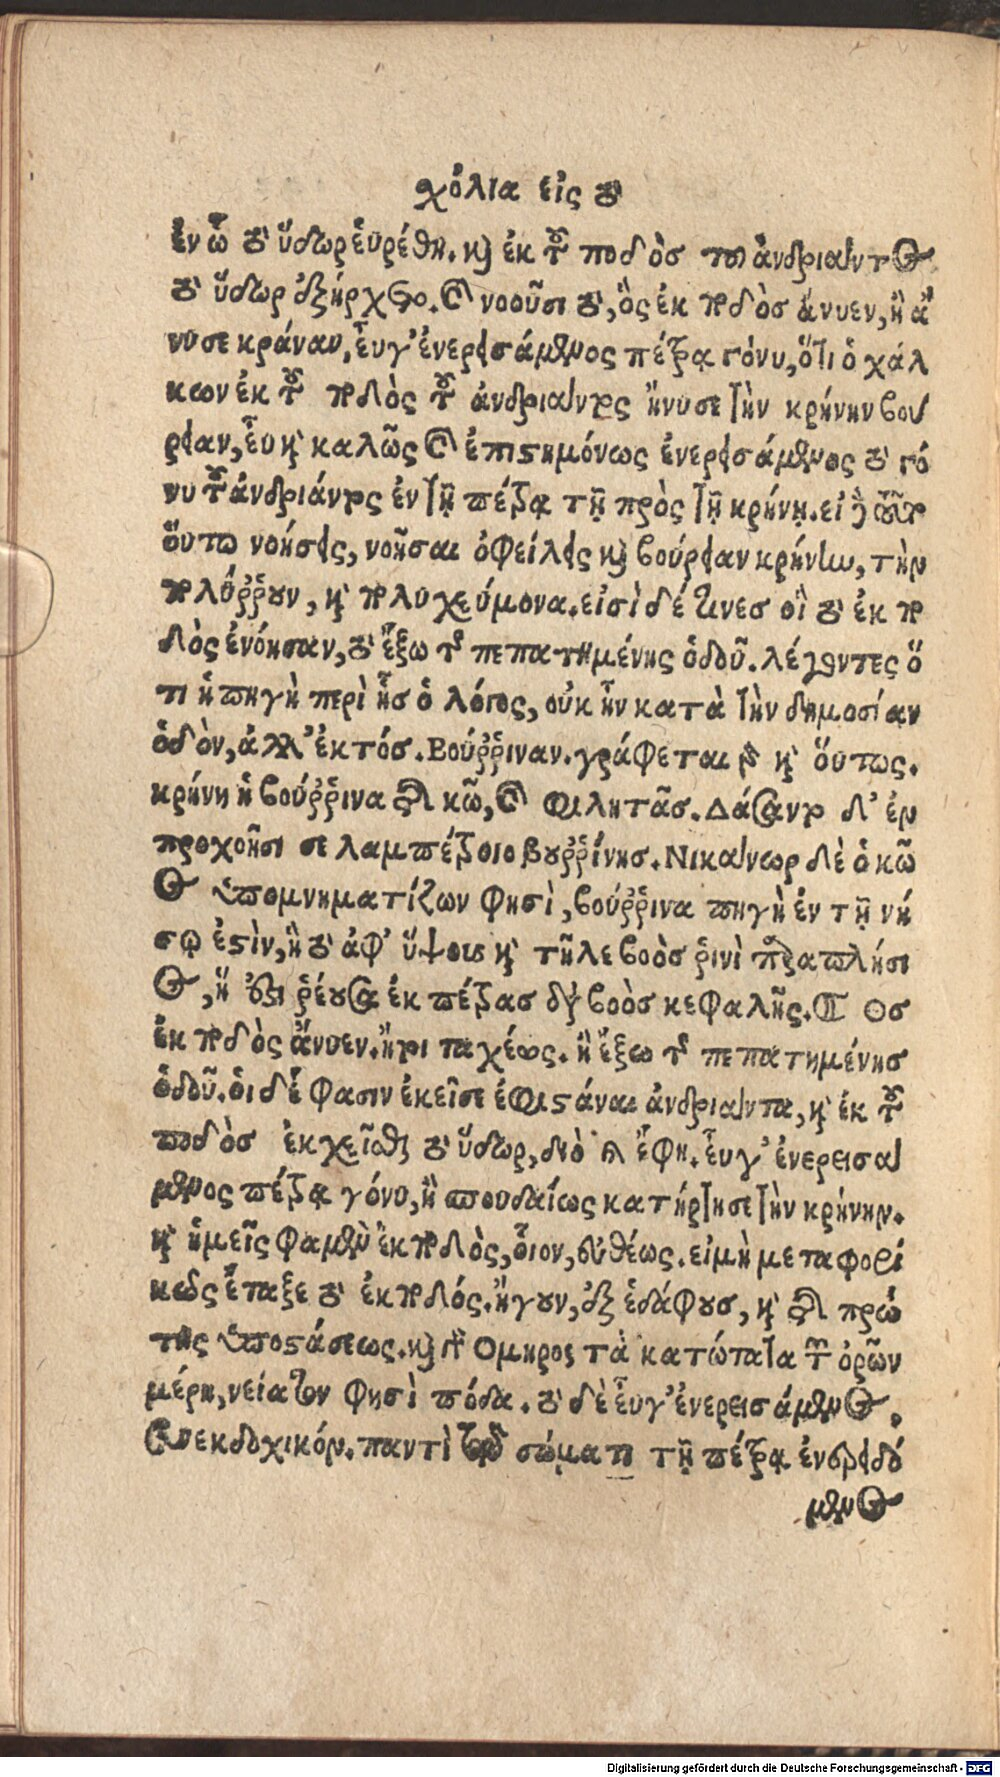 σχόλια εἰς τὸ
ἐν ᾧ τὸ ὕδωρ εὑρέθη. καὶ ἐκ τοῦ ποδὸσ τοῦ ἀνδριάντος
τὸ ὕδωρ ἐξήρχετο. καὶ νοοῦσι τὸ, ὃς ἐκ ποδὸσ ἄνυεν, ἢ ἄ
νυσε κράναν, εὖ γ' ἐνερεισάμενος πέτρᾳ γόνυ, ὅτι ὁ χάλ
κων ἐκ τοῦ ποδὸς τοῦ ἀνδριάντος ἤνυσε τὴν κρήνην βου
ρείαν, εὖ καὶ καλῶς καὶ ἐπιστημόνως ἐνερεισάμενος τὸ γό
νυ τοῦ ἀνδριάντος ἐν τῇ πέτρᾳ τῇ πρὸς τῇ κρήνῃ. εἰ γὰρ
οὕτω νοήσεις, νοῆσαι ὀφείλεις καὶ βούρειαν κρήνην, τὴν
πολύρρουν, καὶ πολυχεύμονα. εἰσὶ δέ τινεσ οἳ τὸ ἐκ πο
δὸς ἐνόησαν, τὸ ἔξω τῆς πεπατημένης ὁδοῦ. λέγοντες ὅ
τι ἡ πηγὴ περὶ ἧσ ὁ λόγος, οὐκ ἦν κατὰ τὴν δημοσίαν
ὁδὸν, ἀλλ' ἐκτόσ. Βούρριναν. γράφεται καὶ οὕτως.
κρήνη ἡ βούρρινα ἐν κῶ, καὶ φιλητᾶσ. Δάσαντο δ' ἐν
προχοῇσι σελαμπέτροιο βυρρίνησ. Νικάνωρ δὲ ὁ κῶ
ος ὑπομνηματίζων φησὶ, βούρρινα πηγὴ ἐν τῇ νή
σῳ ἐστὶν, ἢ τὸ ἀφ' ὕψους καὶ τῆλε βοὸσ ῥινὶ παραπλήσι
ος, ἢ ὅτι ῥέουσα ἐκ πέτρασ διὰ βοὸσ κεφαλῆς. ¶ Οσ
ἐκ ποδὸς ἄνυεν. ἤτοι ταχέως. ἢ ἔξω τῆς πεπατημένησ
ὁδοῦ. οἱ δέ φασιν ἐκεῖσε ἐφιστάναι ἀνδριάντα, καὶ ἐκ τοῦ
ποδὸσ ἐκχεῖσθαι τὸ ὕδωρ, διὸ καὶ ἔφη. εὖ γ' ἐνερεισά
μενος πέτρᾳ γόνυ, ἢ σπουδαίως κατήρτησε τὴν κρήνην.
καὶ ἡμεῖς φαμὲν ἐκ ποδὸς, οἷον, εὐθέως. εἰ μὴ μεταφορί
κῶς ἔταξε τὸ ἐκ ποδός. ἤγουν, ἐξ ἐδάφουσ, καὶ ἐν πρώ
της ὑποστάσεως. καὶ γὰρ Ομηρος τὰ κατώτατα τῶν ὀρῶν
μέρη, νείατον φησὶ πόδα. τὸ δὲ εὖ γ' ἐνερεισάμενος,
συνεκδοχικόν. παντὶ τῷ σώματι τῇ πέτρᾳ ἐνεδρευό
μενος
Digitalisierung gefördert durch die Deutsche Forschungsgemeinschaft - DFG